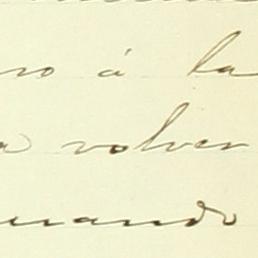 no á la
a volver
uando